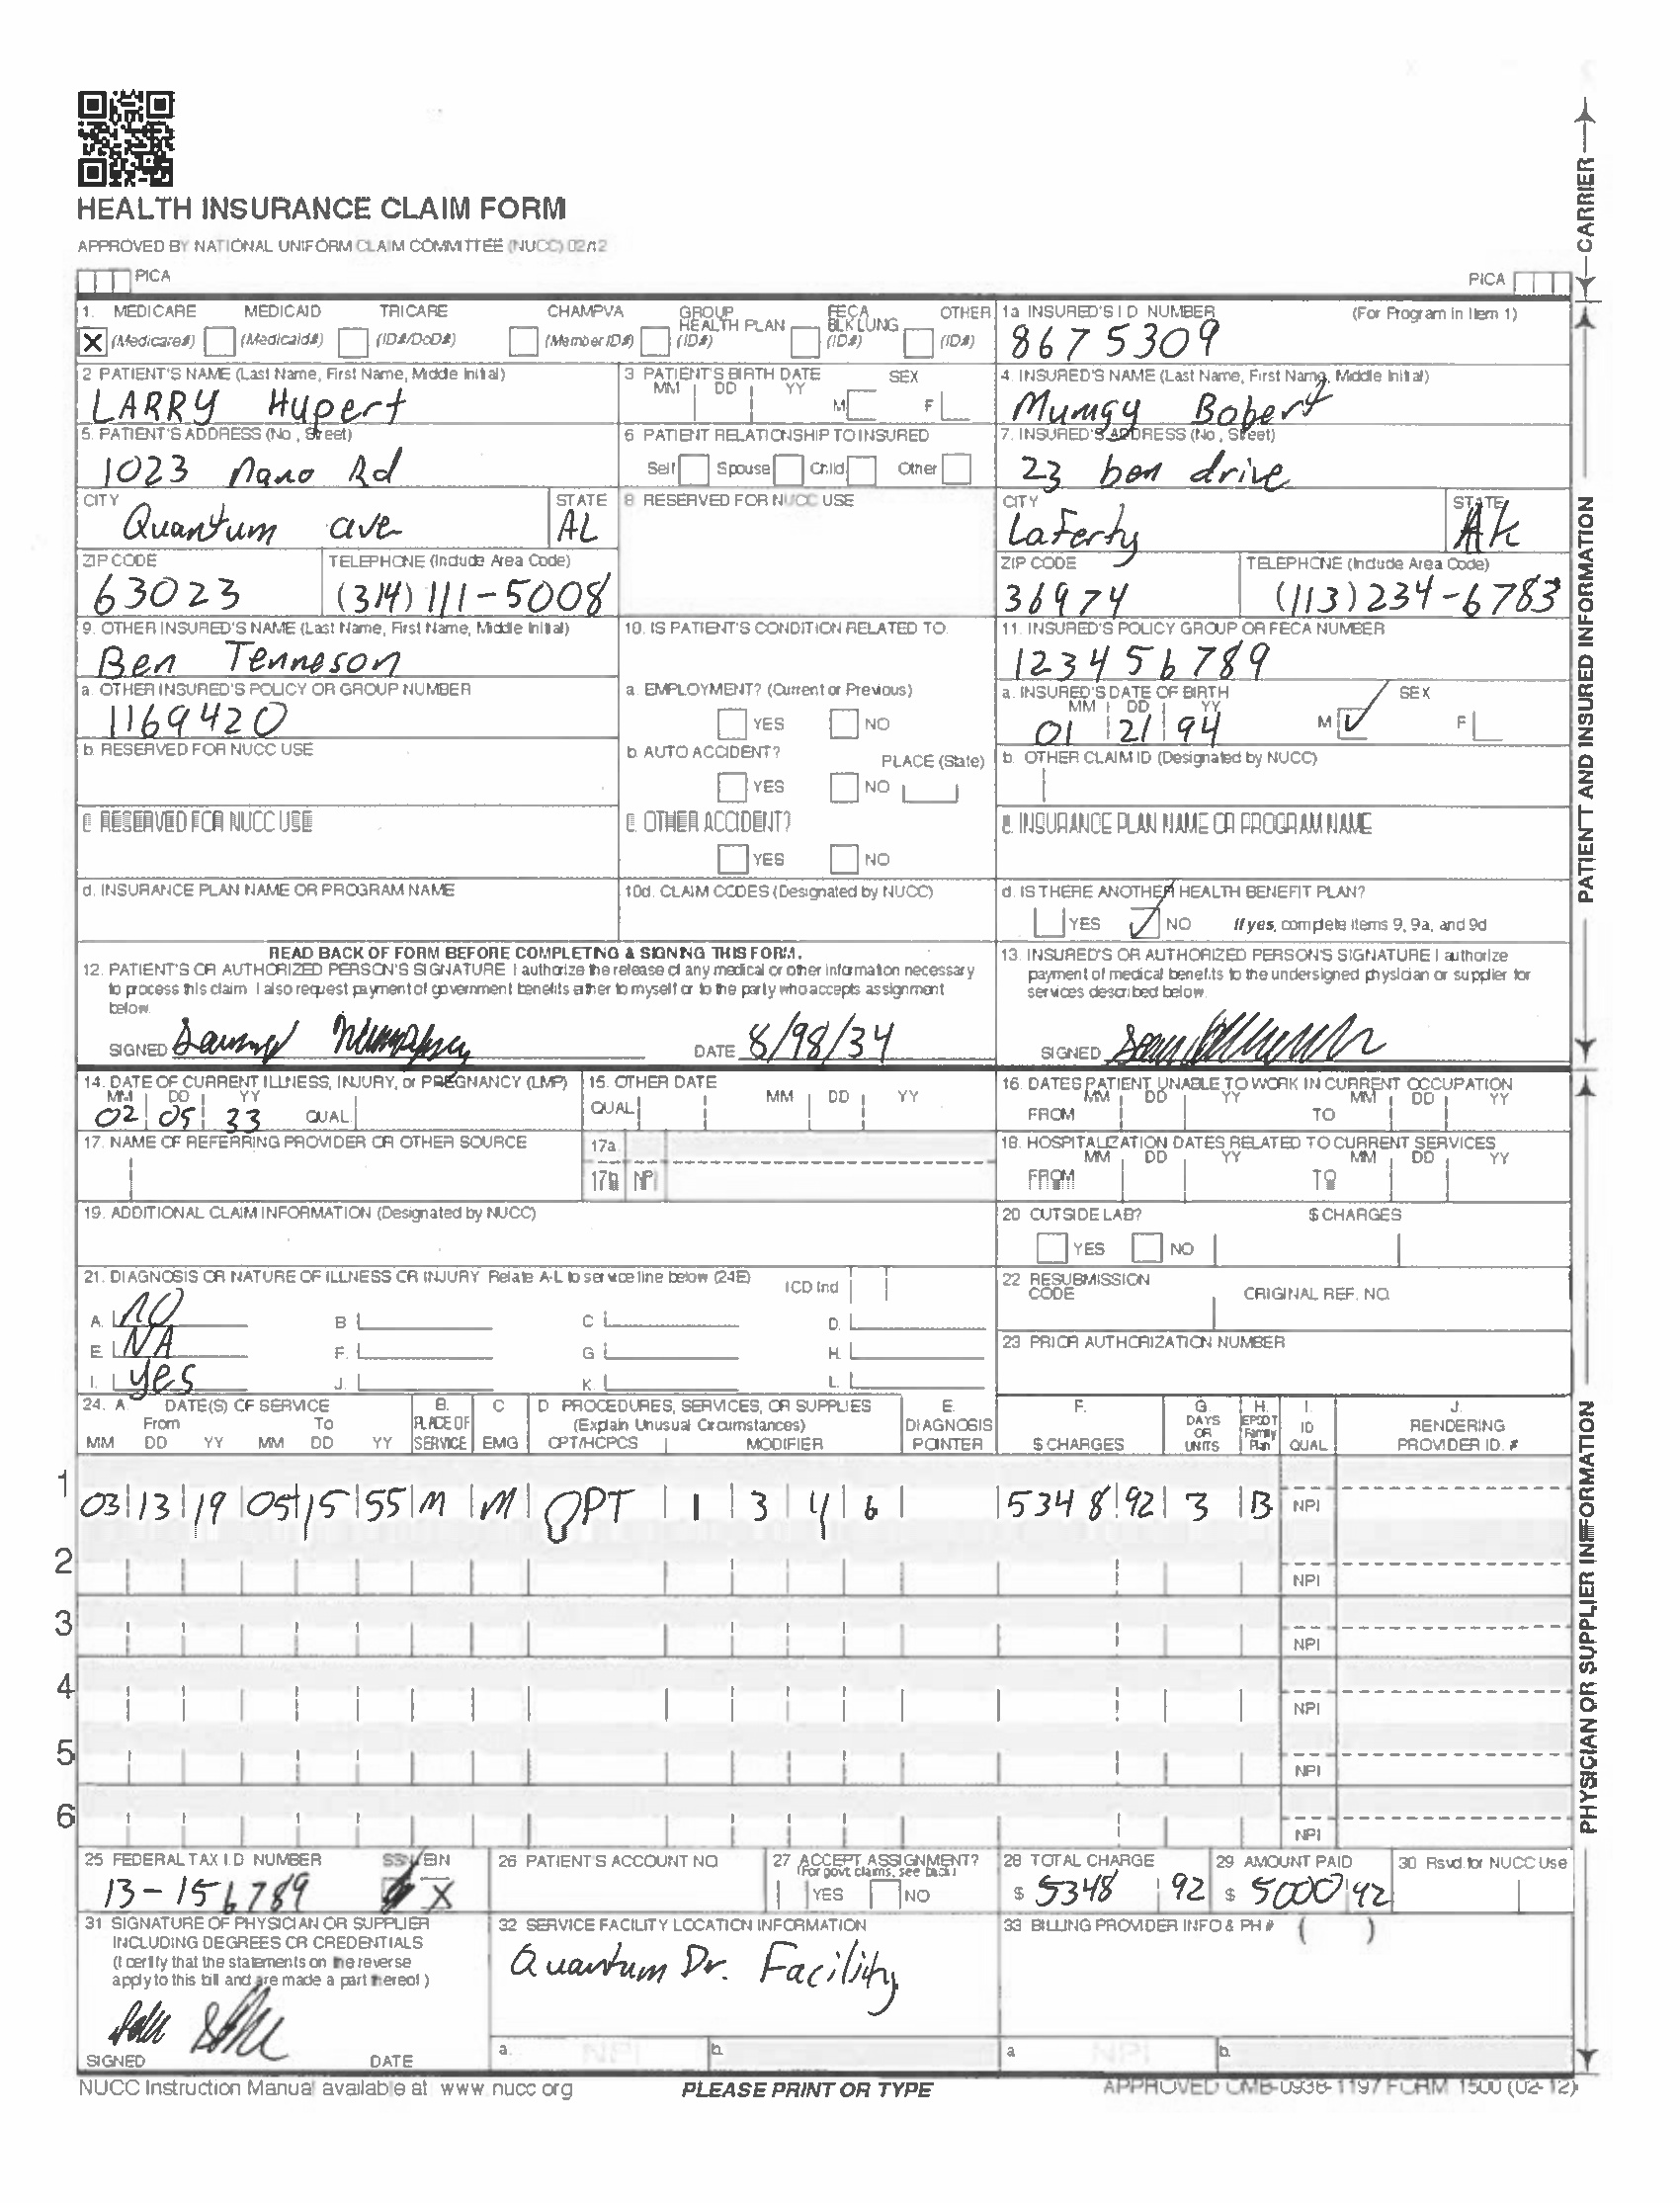 HEALTH INSURANCE CLAIM FORM
APPROVED BY NATIONAL UNIFORM CLAIM COMMITTEE (NUCC) 02/12
PICA
PICA
CARRIER
1. MEDICARE MEDICAID TRICARE CHAMPVA GROUP HEALTH PLAN FECA BLK LUNG OTHER
X (Medicare#) (Medicaid#) (ID#/DoD#) (Member ID#) (ID#) (ID#) (ID#)
1a INSURED'S I D NUMBER (For Program in Item 1)
8675309
2 PATIENT'S NAME (Last Name, First Name, Middle Initial)
LARRY Hupert
3 PATIENT'S BIRTH DATE SEX
MM DD YY M F
4. INSURED'S NAME (Last Name, First Name, Middle Initial)
Mumgy Bobert
5. PATIENT'S ADDRESS (No, Street)
1023 nano Rd
6 PATIENT RELATIONSHIP TO INSURED
Self Spouse Child Other
7. INSURED'S ADDRESS (No, Street)
23 ben drive
CITY STATE
Quantum ave AL
8 RESERVED FOR NUCC USE
CITY STATE
Laferty AK
ZIP CODE TELEPHONE (Include Area Code)
63023 (314) 111-5008
ZIP CODE TELEPHONE (Include Area Code)
36974 (113) 234-6783
9. OTHER INSURED'S NAME (Last Name, First Name, Middle Initial)
Ben Tenneson
10. IS PATIENT'S CONDITION RELATED TO
11. INSURED'S POLICY GROUP OR FECA NUMBER
123456789
a. OTHER INSURED'S POLICY OR GROUP NUMBER
1169420
a. EMPLOYMENT? (Current or Previous)
YES NO
a. INSURED'S DATE OF BIRTH SEX
MM DD YY
01 21 94 M F
b. RESERVED FOR NUCC USE
b AUTO ACCIDENT? PLACE (State)
YES NO
b. OTHER CLAIM ID (Designated by NUCC)
C RESERVED FOR NUCC USE
C. OTHER ACCIDENT?
YES NO
c. INSURANCE PLAN NAME OR PROGRAM NAME
d. INSURANCE PLAN NAME OR PROGRAM NAME
10d. CLAIM CODES (Designated by NUCC)
d. IS THERE ANOTHER HEALTH BENEFIT PLAN?
YES NO If yes, complete items 9, 9a, and 9d
PATIENT AND INSURED INFORMATION
READ BACK OF FORM BEFORE COMPLETING & SIGNING THIS FORM.
12. PATIENT'S OR AUTHORIZED PERSON'S SIGNATURE I authorize the release of any medical or other information necessary
to process this claim I also request payment of government benefits either to myself or to the party who accepts assignment
below
SIGNED DATE 8/98/34
13. INSURED'S OR AUTHORIZED PERSON'S SIGNATURE I authorize
payment of medical benefits to the undersigned physician or supplier for
services described below
SIGNED
14. DATE OF CURRENT ILLNESS, INJURY, or PREGNANCY (LMP)
MM DD YY
02 05 33 QUAL
15. OTHER DATE
QUAL MM DD YY
16. DATES PATIENT UNABLE TO WORK IN CURRENT OCCUPATION
MM DD YY MM DD YY
FROM TO
17. NAME OF REFERRING PROVIDER OR OTHER SOURCE
17a
17b NPI
18. HOSPITALIZATION DATES RELATED TO CURRENT SERVICES
MM DD YY MM DD YY
FROM TO
19. ADDITIONAL CLAIM INFORMATION (Designated by NUCC)
20 OUTSIDE LAB? $ CHARGES
YES NO
21. DIAGNOSIS OR NATURE OF ILLNESS OR INJURY Relate A-L to service line below (24E) ICD Ind
A. NO B C D.
E NA F. G H.
I. yes J. K. L.
22 RESUBMISSION CODE ORIGINAL REF. NO.
23 PRIOR AUTHORIZATION NUMBER
24. A DATE(S) OF SERVICE B. PLACE OF SERVICE C EMG D PROCEDURES, SERVICES, OR SUPPLIES E. DIAGNOSIS POINTER F. $ CHARGES G. DAYS OR UNITS H. EPSDT Family Plan I. ID QUAL J. RENDERING PROVIDER ID. #
From To (Explain Unusual Circumstances)
MM DD YY MM DD YY CPT/HCPCS MODIFIER
1 03 13 19 05 15 55 M M OPT 1 3 4 6 5348 92 3 B NPI
2 NPI
3 NPI
4 NPI
5 NPI
6 NPI
PHYSICIAN OR SUPPLIER INFORMATION
25 FEDERAL TAX I.D NUMBER SSN EIN
13-156789 X
26 PATIENT'S ACCOUNT NO
27 ACCEPT ASSIGNMENT?
(For govt claims, see back)
YES NO
28 TOTAL CHARGE
$ 5348 92
29 AMOUNT PAID
$ 5000 42
30 Rsvd for NUCC Use
31 SIGNATURE OF PHYSICIAN OR SUPPLIER
INCLUDING DEGREES OR CREDENTIALS
(I certify that the statements on the reverse
apply to this bill and are made a part thereof)
SIGNED DATE
32 SERVICE FACILITY LOCATION INFORMATION
Quantum Dr. Facility
a. NPI b.
33 BILLING PROVIDER INFO & PH # ( )
a NPI b.
NUCC Instruction Manual available at www nucc org
PLEASE PRINT OR TYPE
APPROVED OMB-0938-1197 FORM 1500 (02-12)